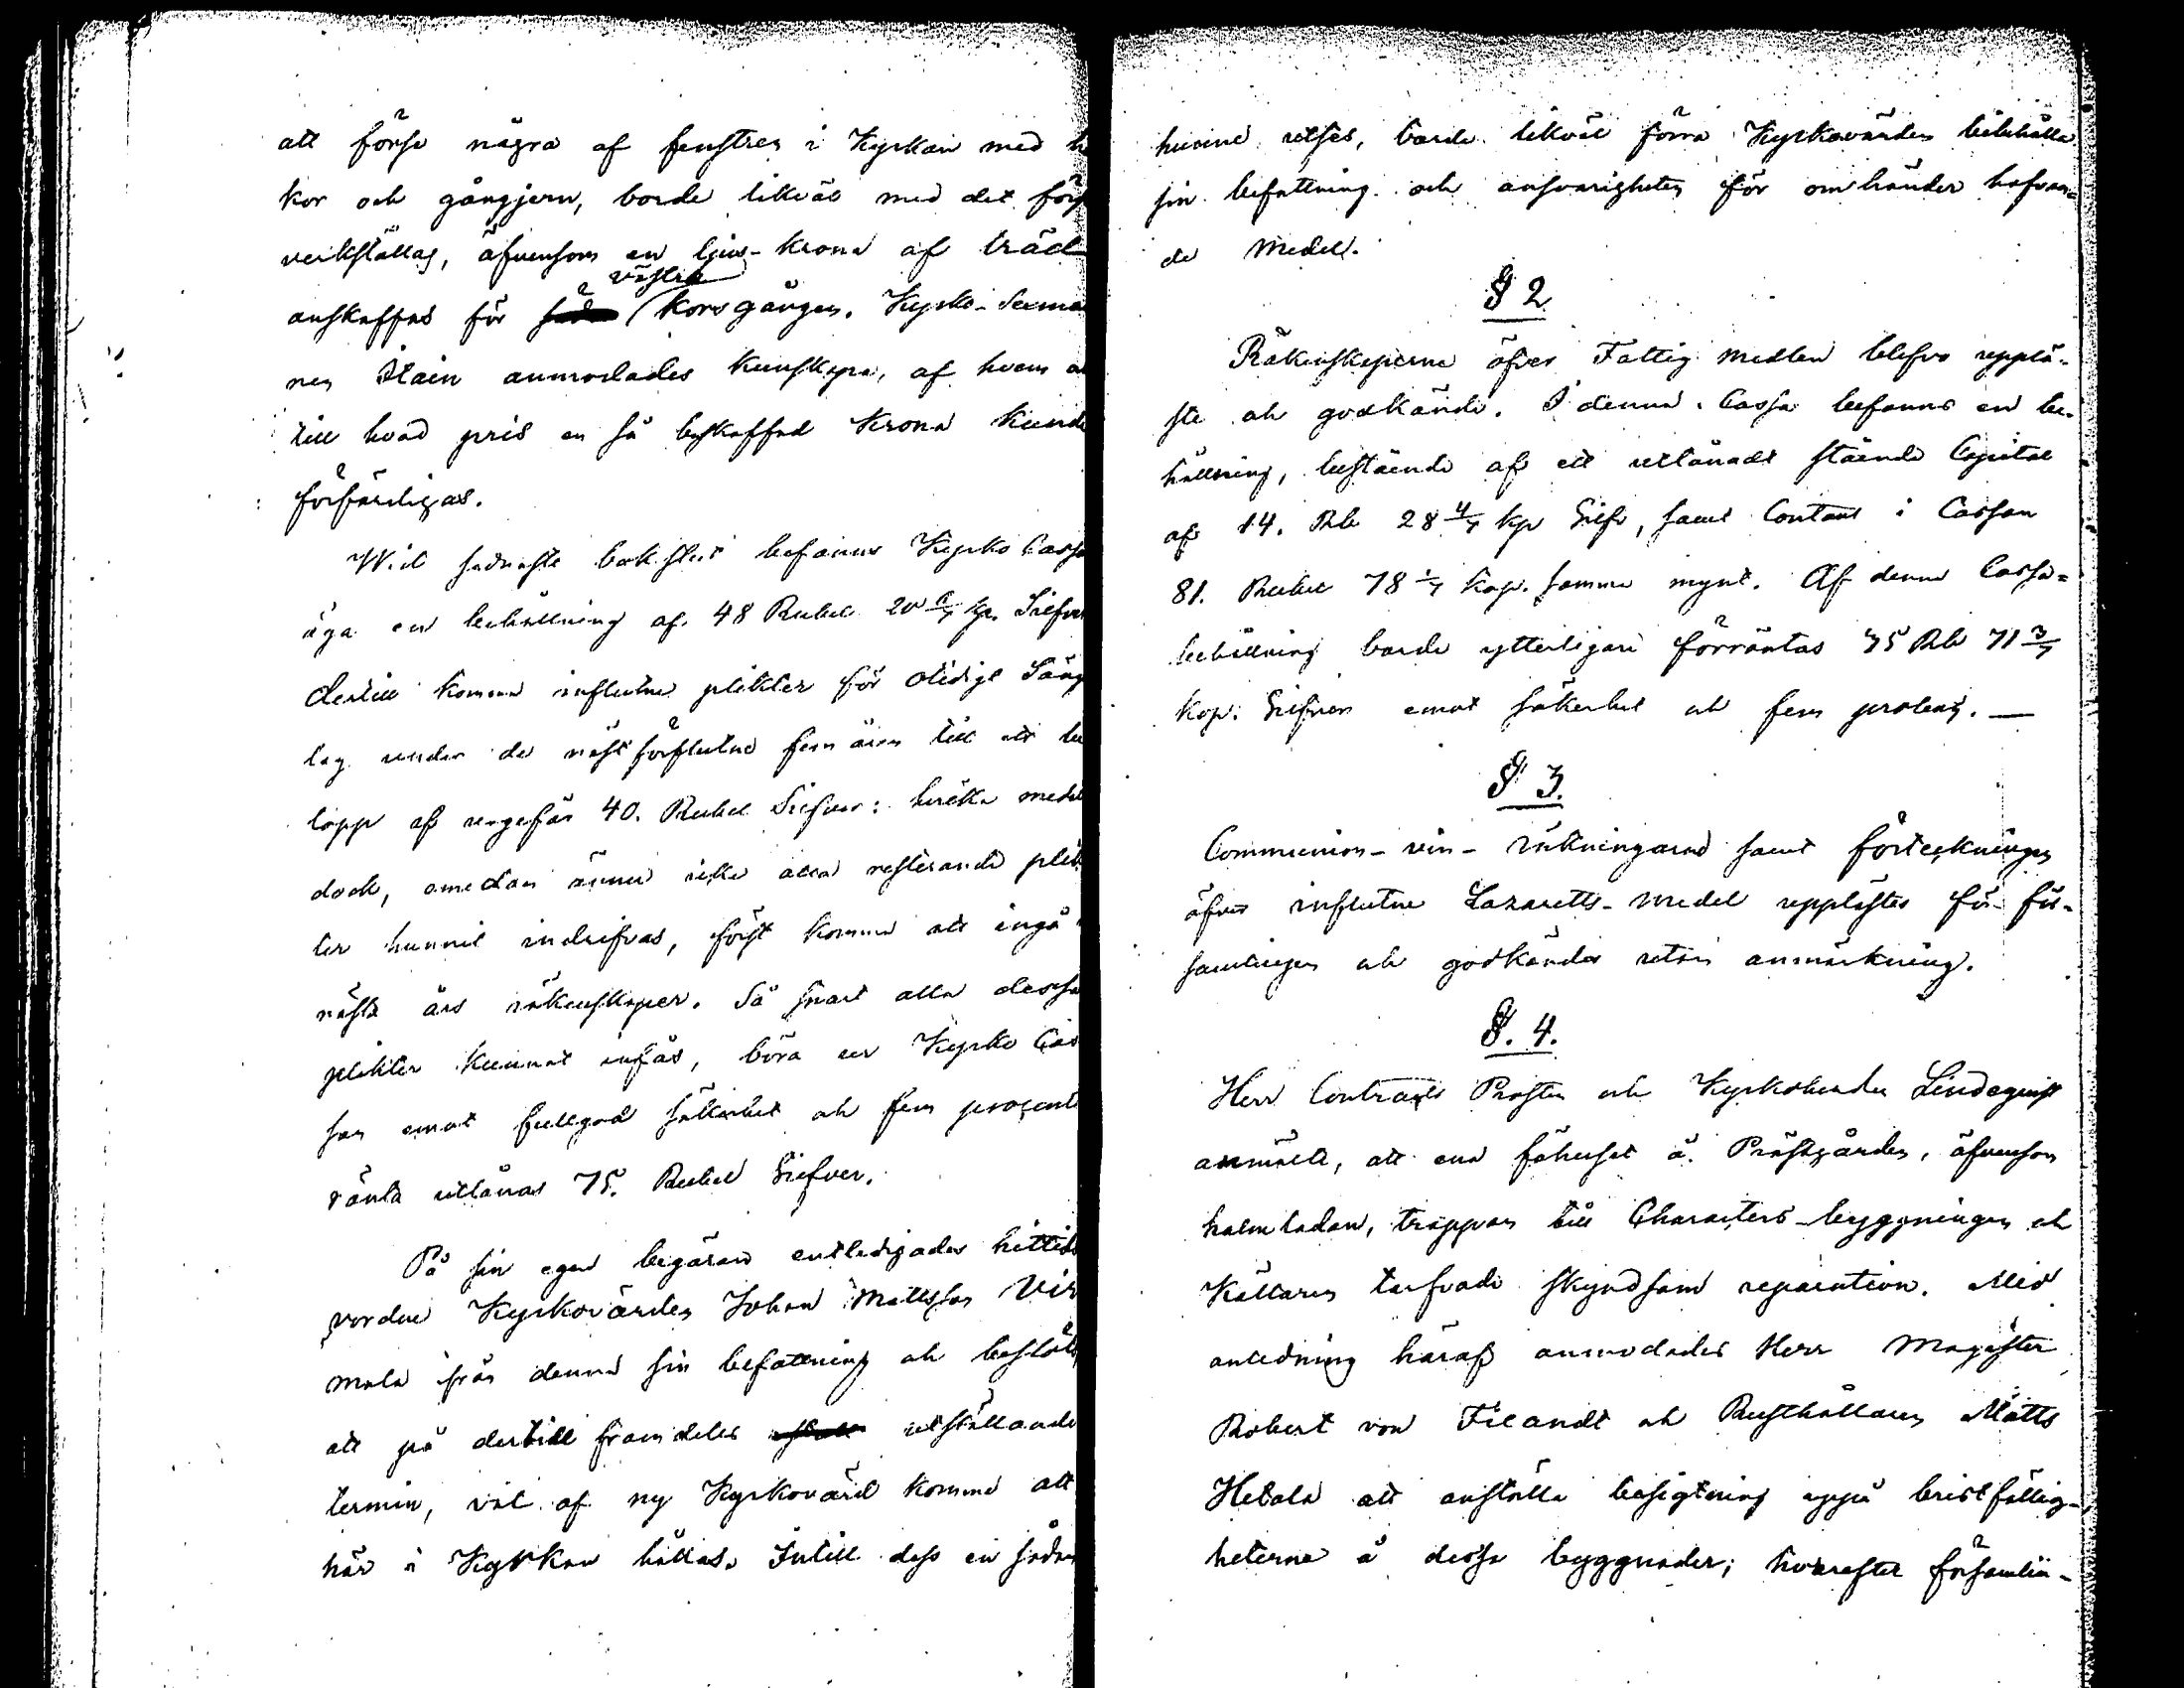 att förse några af fenstren i Kyrkan med h
kor och gångjern, borde likväl med det förs
verkställas, äfvensom en ljus-krona af träd
västra
anskaffas för korsgången. Kyrko-
nen anmodades kunskapa, af hvem
till hvad pris en så beskaffad krona kunde
förfärdigas.
Wid sednaste bokslut befanns Kyrko Cassa
äga en behållning af 48 Rubel 20 6/7 kp. Silfver
dertill komma influtna plikter för otidigt Säng
lag under de näst förflutna fem åren till ett be
lopp af ungefär 40. Rubel Silfver: hvilka medel
dock, emedan ännu icke alla resterande plik
ter hunnit indrifvas, först komma att ingå
nästa års räkenskaper. Så snart alla dessa
plikter kunnat infås, böra ur Kyrko Cas
san emot fullgod säkerhet och fem procents
ränta utlånas 75. Rubel Silfver.
På sin egen begäran entledigades hittills
vordne Kyrkovärden Johan Mattsson Vir
mala från denna sin befattning och beslöts
att på dertill framdeles utsättande
termin, val af ny Kyrkovärd komme att
här i Kyrkan hållas. Intill dess en sådan
hunne utses, borde likväl förra Kyrkovärden bibehålla
sin befattning och ansvarigheten för om händer hafvan=
de Medel.
§ 2
Räkenskaperne öfver Fattig medlen blefvo upplä-
ste och godkände. I denna Cassa befanns en be-
hållning, bestående af ett utlånadt stående Capital
af 14. Rub 28 4/7 kp Silfr, samt Contant i Cassan
81. Rubel 78 1/7 kop. samma mynt. Af denna Cassa=
behållning borde ytterligare förräntas 75 Rub 71 3/7
kop. Silfver emot säkerhet och fem procent. —
§ 3.
Communion-vin-räkningarne samt förteckningen
öfver influtne Lazaretts-medel upplästes för för-
samlingen och godkändes utan anmärkning.
§. 4.
Herr Contracts Prosten och Kyrkoherden Lindequist
anmälte, att ena fähuset å Prästgården, äfvensom
halmladan, trappan till Characters-byggningen och
Källaren tarfvade skyndsam reparation. Med
anledning häraf anmodades Herr Magister
Robert von Fieandt och Rusthållaren Matts
Hetala att anställa besigtning uppå bristfällig-
heterna å dessa byggnader; hvarefter församlin-